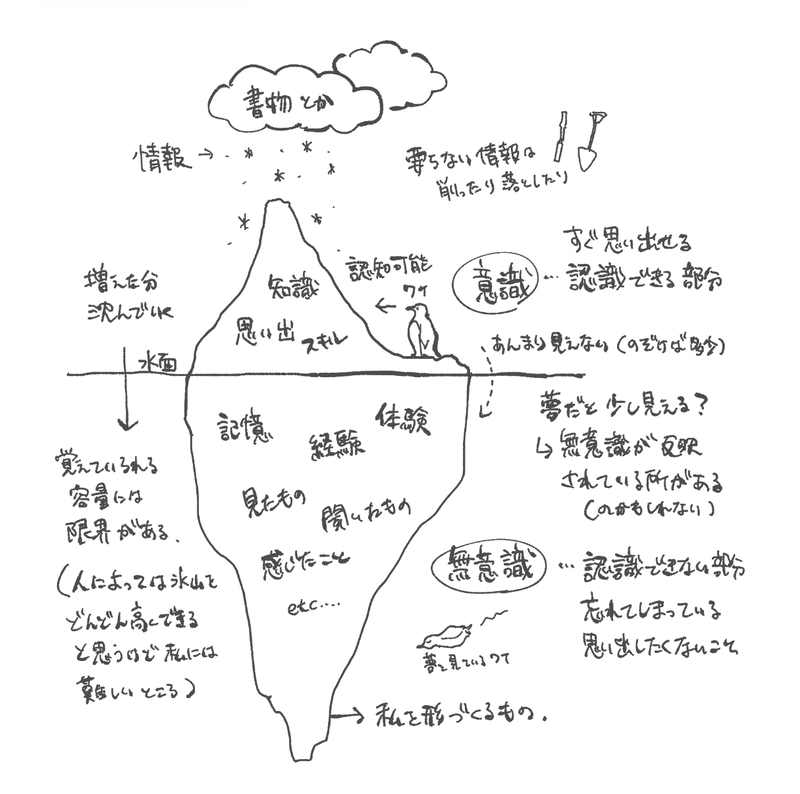 書物とか
情報→
要らない情報は
削ったり落としたり
増えた分
沈んでいく
水面
知識
思い出
スキル
認知可能
←
ワケ
意識
… すぐ思い出せる
認識できる部分
あんまり見えない（のぞけば多少）
記憶
経験
体験
見たもの
聞いたもの
感じたこと
etc....
覚えていられる
容量には
限界がある.
（人によっては氷山を
どんどん高くできる
と思うけど私には
難しいところ）
夢だと少し見える?
↳無意識が反映
されている所がある
（のかもしれない）
無意識
… 認識できない部分
忘れてしまっている
思い出したくないこと
夢を見ているワケ
→私を形づくるもの.